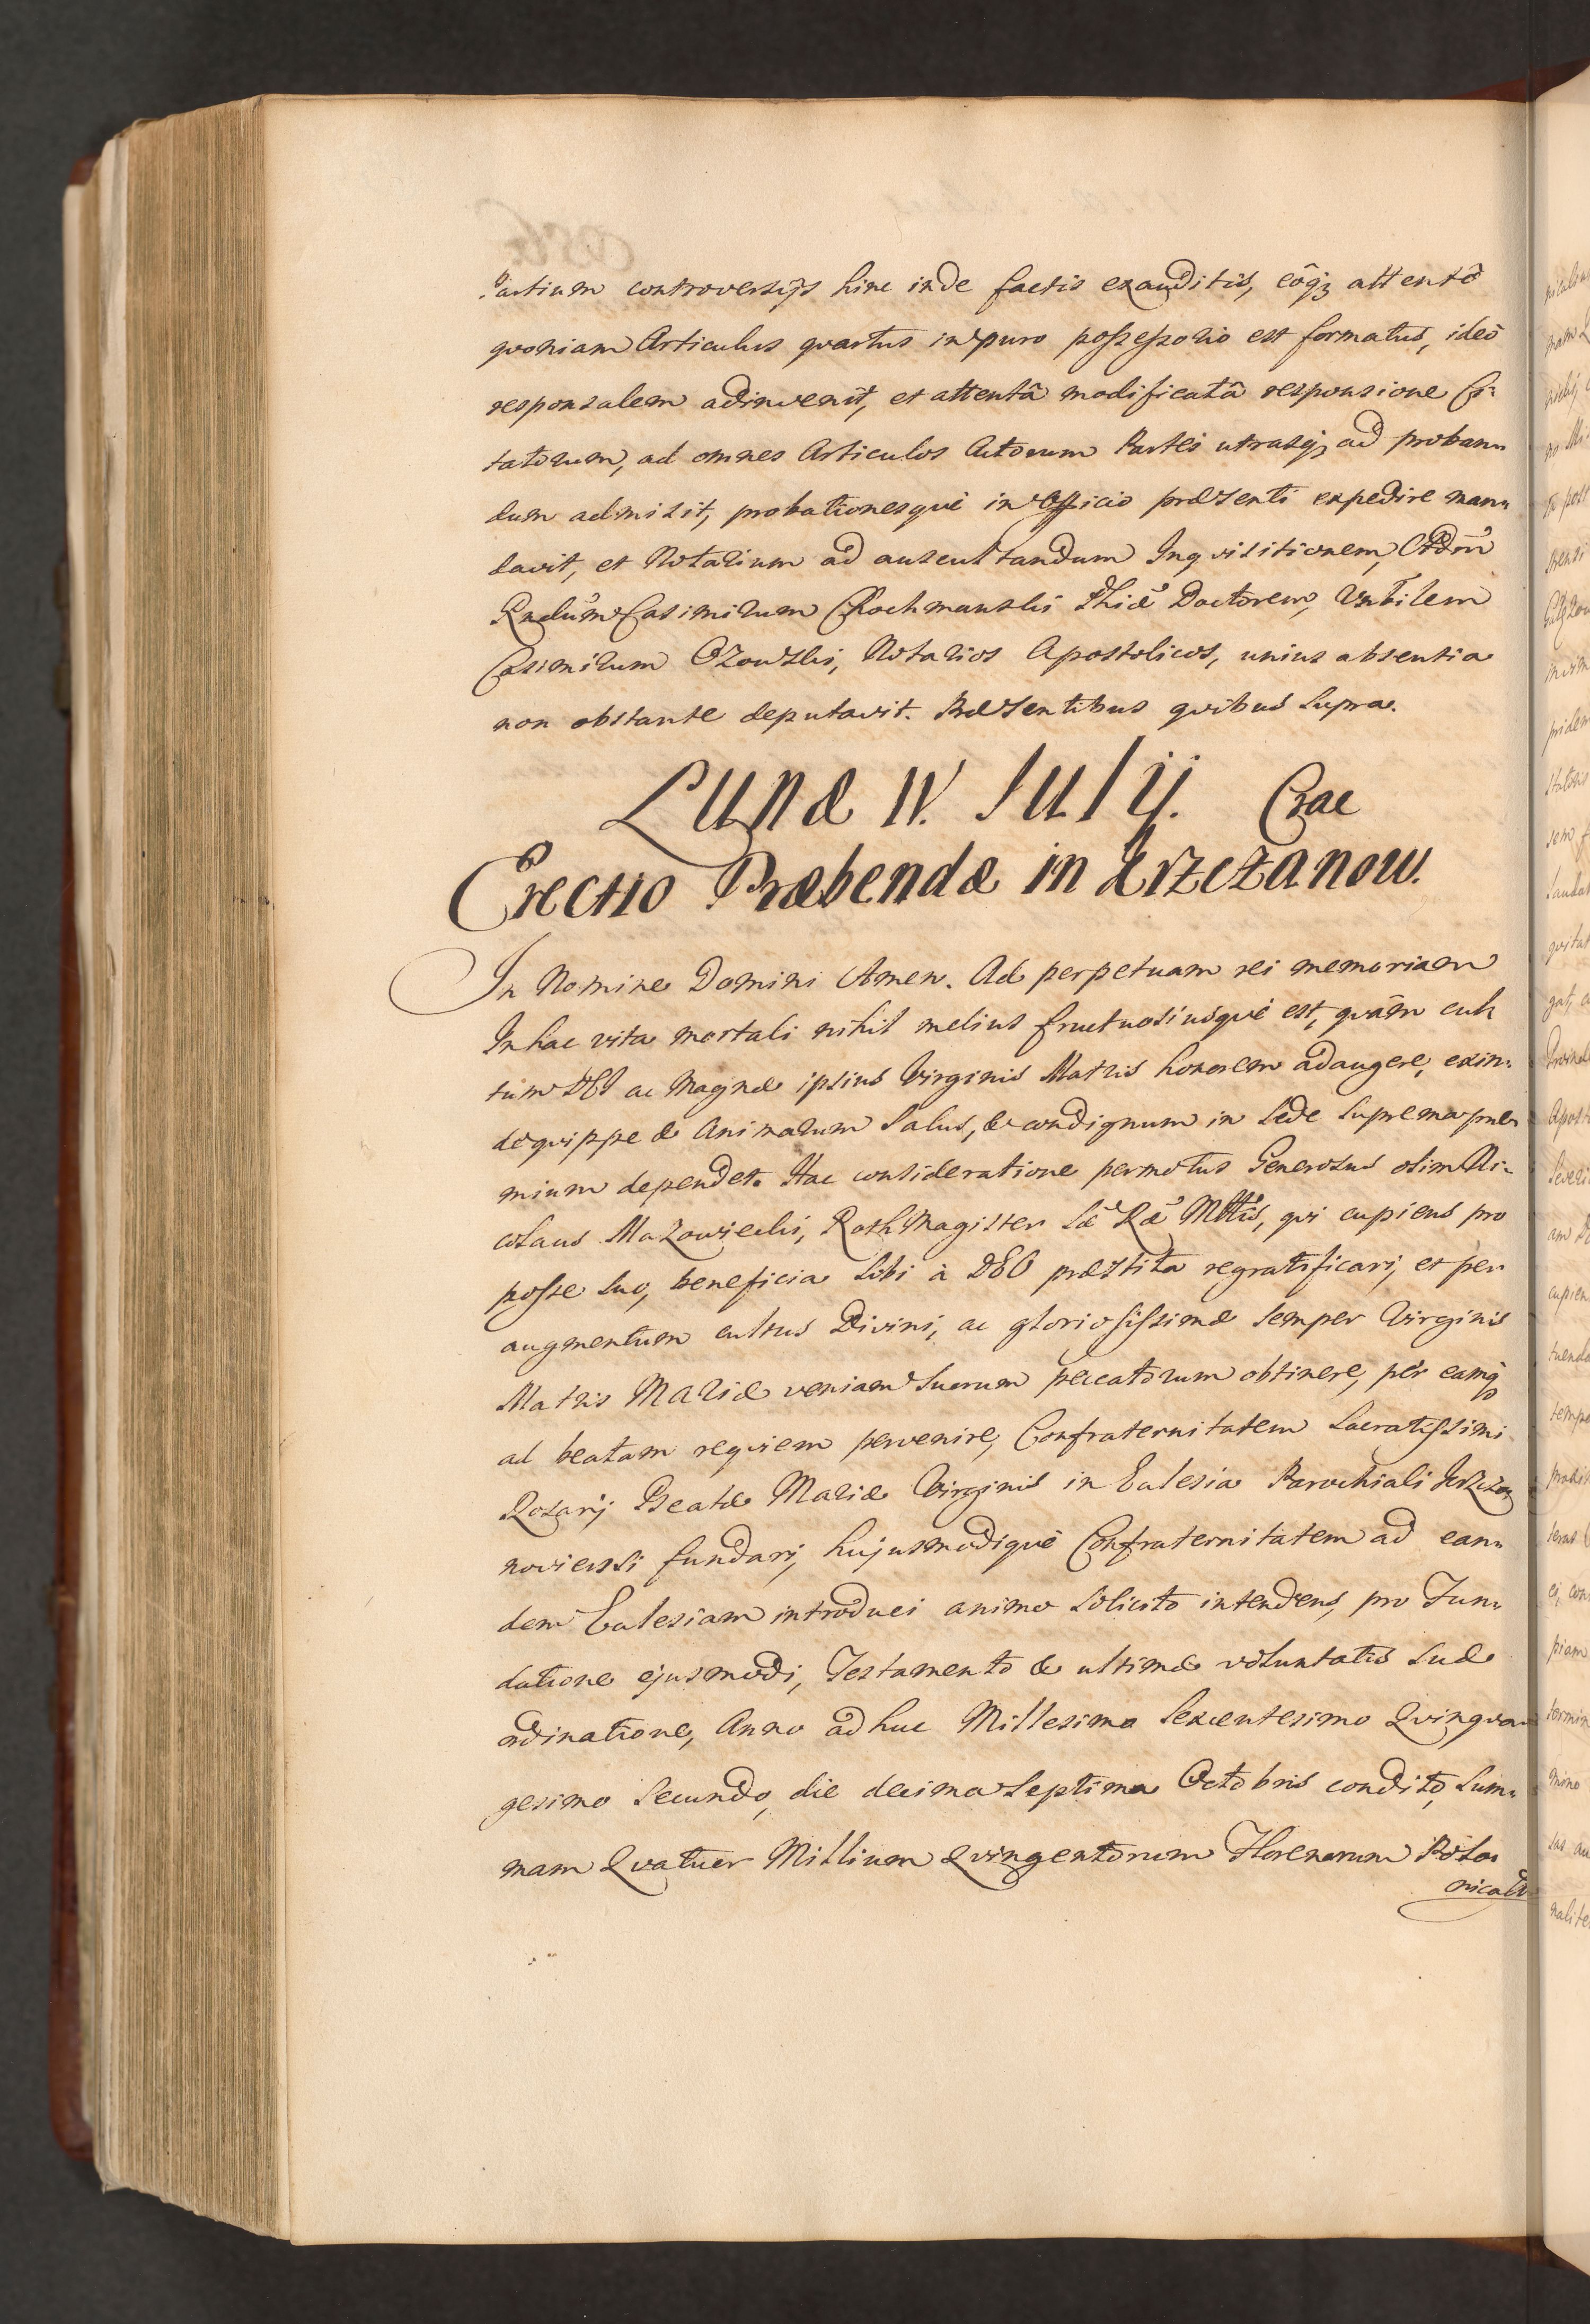 Partium controversijs hinc inde factis exauditis, eoq̃ꝫ attentô
qvoniam Articulus qvartus in puro possessorio est formatus, ideò
responsalem adinvenit, et attentâ modificatâ responsione Ci-
tatorum, ad omnes Articulos Actorum Partes utrasqꝫ ad proban-
dum admisit, probationesquè in Officio præsenti expedire man-
davit, et Notarium ad auscultandum Inqvisitionem,
Rndum Casimirum Doctorem,
Casimirum Notarios Apostolicos, unius absentia
non obstante deputavit. Præsentibus qvibus supra.
Lunæ IV. Julÿ. Crac
Erectio Præbendæ in Krzczanow.
In Nomine Domini Amen. Ad perpetuam rei memoriam
In hac vita mortali nihil melius fructuosiusquè est, qvàm cul
tum DEI ac Magnæ ipsius Virginis Matris honorem adaugere, exin-
de qvippe & Animarum Salus, & condignum in Sede Suprema præ
mium dependet. Hac consideratione permotus Generosus olim Ni-
colaus Mazowiecki, RothMagister Sæ Ræ Mttis, qvi cupiens pro
posse suo, beneficia sibi à DEO præstita regratificari, et per
augmentum cultus Divini, ac gloriosissimæ semper Virginis
Matris Mariæ veniam suorum peccatorum obtinere, pér eamq̃
ad beatam reqviem pervenire, Confraternitatem Sacratissimi
Rosarij Beatæ Mariæ Virginis in Ecclesia Parochiali Krzcza
noviensi fundari, hujusmodiquè Confraternitatem ad ean-
dem Ecclesiam introduci animo solicito intendens, pro Fun-
datione ejusmodi, Testamento & ultimæ voluntatis suæ
ordinatione, Anno adhuc Millesimo Sexcentesimo Qvinqva
gesimo Secundo, die decima Septima Octobris condito, Sum-
mam Qvatuor Millium Qvingentorum Florenorum Polo-
nicali